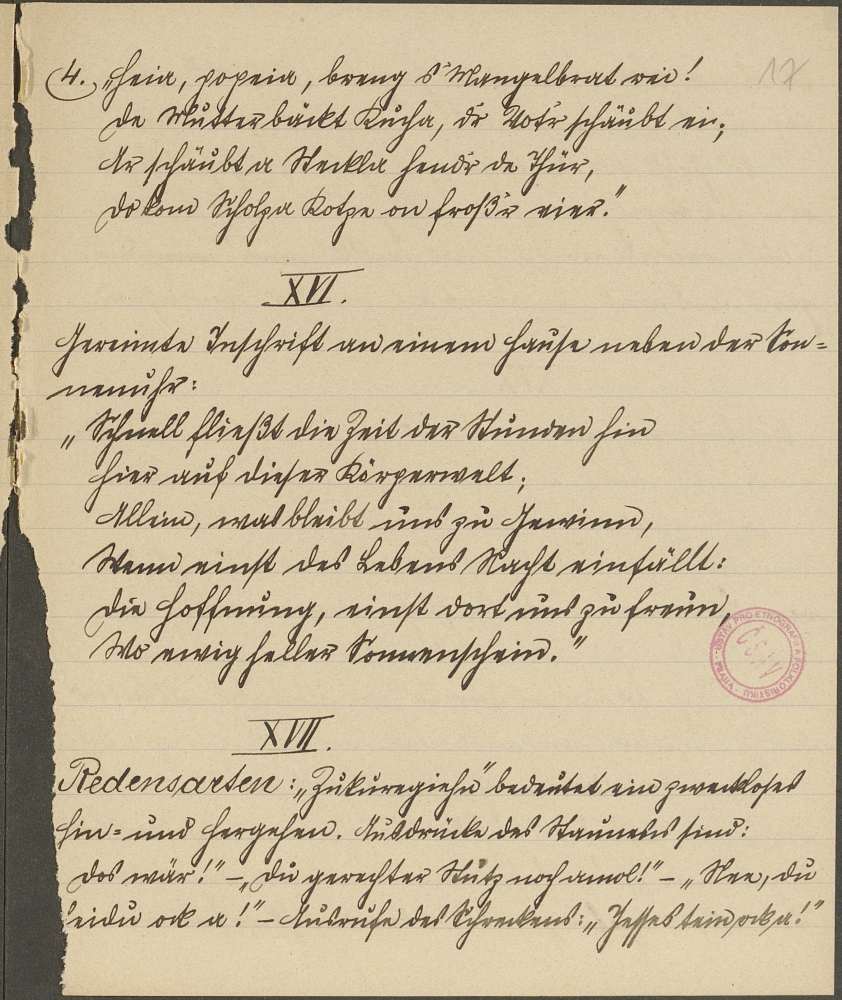 17
4. „Heia, popeia, breng s' Mangelbrat rei!
de Mutter bäckt Kucha, dr Vot'r schäubt ei;
Ar schäubt a Steckla hendr de Thür,
do kom Scholza Kotze on froß'r vier."
XVI.
Gereimte Inschrift an einem Hause neben der Son=
nenuhr:
„Schnell fließt die Zeit der Stunden hin
hier auf dieser Körperwelt;
Allein, was bleibt uns zu Gewinn,
Wenn einst des Lebens Nacht einfällt:
Die Hoffnung, einst dort uns zu freun,
Wo ewig heller Sonnenschein."
XVII.
Redensarten: „Zukuregiehn" bedeutet ein zweckloses
Hin= und Hergehen. Ausdrücke des Staunens sind:
Dos wär!" – „Du gerechter Stütz noch amol!" – „Nee, du
ock a!" – Ausrufe des Schreckens: „Jesses ock a!"
ÚSTAV PRO ETNOGRAFII A FOLKLORISTIKU
PRAHA
ČSAV